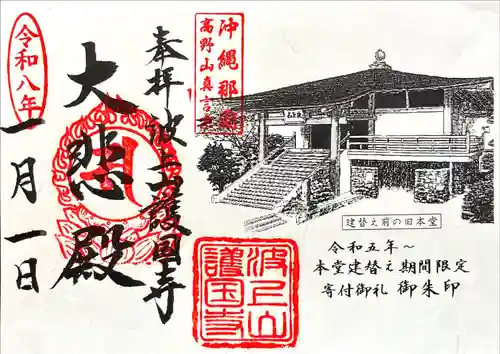 沖縄那覇
高野山真言宗
奉拝 波上山護国寺
大悲殿
令和八年
一月一日
波上山
護国寺
建替え前の旧本堂
令和五年〜
本堂建替え期間限定
寄付御礼 御朱印